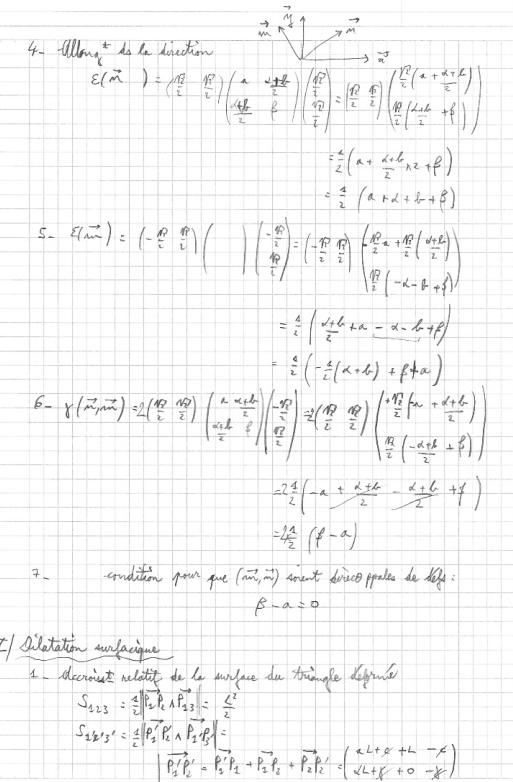 y
m n
x
4- Allong^t ds la direction
ε(n) = (√2/2 √2/2) (a (α+b)/2 ; (α+b)/2 β) (√2/2 ; √2/2) = (√2/2 √2/2) (√2/2 (a + (α+b)/2) ; √2/2 ((α+b)/2 + β))
= 1/2 (a + (α+b)/2 ×2 + β)
= 1/2 (a + α + b + β)
5- ε(m) = (-√2/2 √2/2) ( ) (-√2/2 ; √2/2) = (-√2/2 √2/2) (-√2/2 a + √2/2 ((α+b)/2) ; √2/2 (-α - b + β))
= 1/2 ((α+b)/2 + a - α - b + β)
= 1/2 (-1/2 (α+b) + β + a)
6- γ(n,m) = 2 (√2/2 √2/2) (a (α+b)/2 ; (α+b)/2 β) (-√2/2 ; √2/2) = 2 (√2/2 √2/2) (+√2/2 (-a + (α+b)/2) ; √2/2 (-(α+b)/2 + β))
= 2 1/2 (-a + (α+b)/2 - (α+b)/2 + β)
= 2 1/2 (β - a)
7- condition pour que (m,n) soient direc° ppales de défs :
β - a = 0
I/ Dilatation surfacique
1- Accroisst relatif de la surface du triangle déformé
S123 = 1/2 ||P1P2 ∧ P13|| = L²/2
S1'2'3' = 1/2 ||P1'P2' ∧ P1'P3'|| =
P1'P2' = P1'P1 + P1P2 + P2P2' = (aL + c + L - c ; αL + γ + 0 - γ)